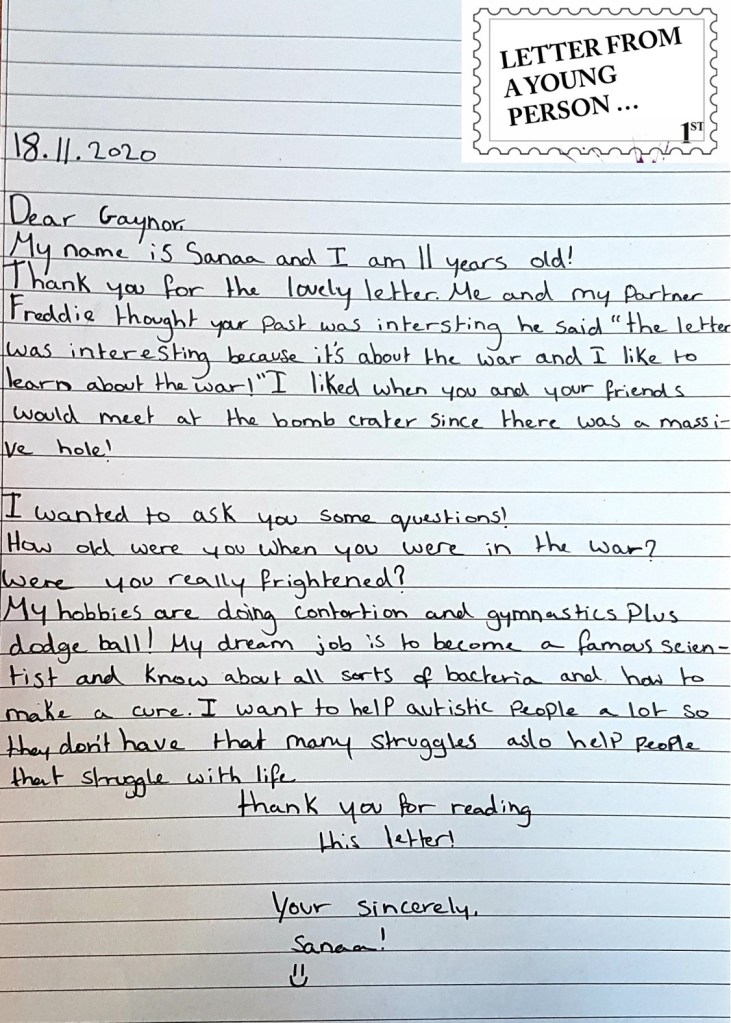 LETTER FROM
A YOUNG
PERSON ...
1ST
18.11.2020
Dear Gaynor.
My name is Sanaa and I am 11 years old!
Thank you for the lovely letter. Me and my partner
Freddie thought your past was intersting he said "the letter
was interesting because it's about the war and I like to
learn about the war!" I liked when you and your friends
would meet at the bomb crater since there was a massi-
ve hole!
I wanted to ask you some questions!
How old were you when you were in the war?
Were you really frightened?
My hobbies are doing contortion and gymnastics Plus
dodge ball! My dream job is to become a famous scien-
tist and know about all sorts of bacteria and how to
make a cure. I want to help autistic People a lot so
they don't have that many struggles aslo help people
that struggle with life
thank you for reading
this letter!
Your sincerely,
Sanaa!